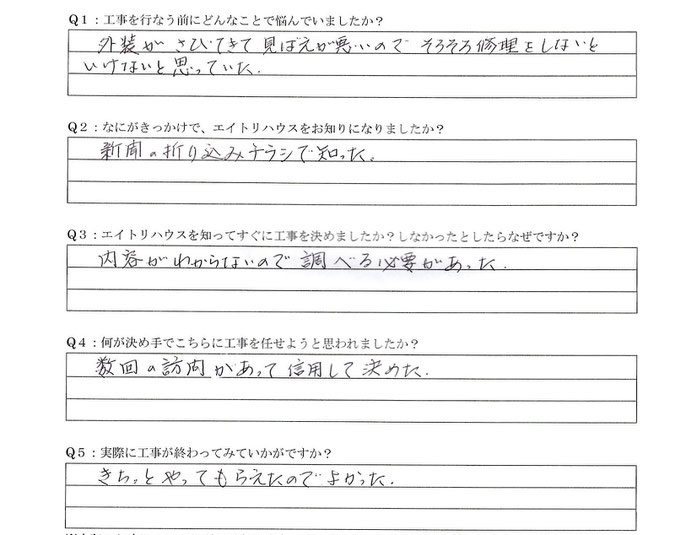 Q1：工事を行なう前にどんなことで悩んでいましたか？
外装が さびてきて 見ばえが悪いので そろそろ修理をしないと
いけないと思っていた.
Q2：なにがきっかけで、エイトリハウスをお知りになりましたか？
新聞の折り込みチラシで知った.
Q3：エイトリハウスを知ってすぐに工事を決めましたか？しなかったとしたらなぜですか？
内容がわからないので調べる必要があった.
Q4：何が決め手でこちらに工事を任せようと思われましたか？
数回の訪問があって信用して決めた.
Q5：実際に工事が終わってみていかがですか？
きちっとやってもらえたのでよかった.